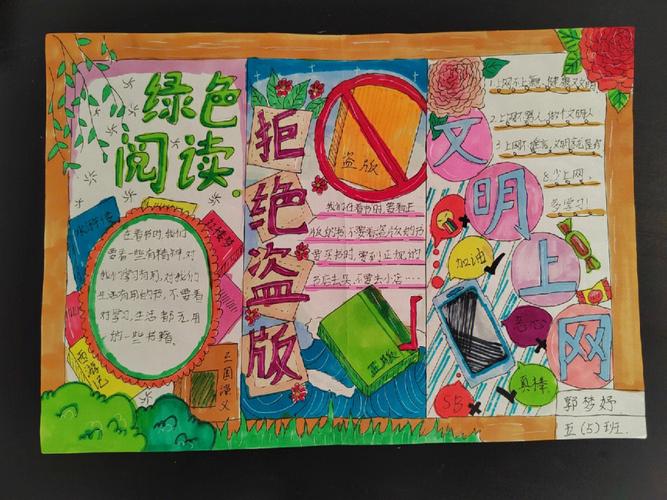 绿色
阅读
水浒传
红楼梦
在看书时,我们
要看一些有精神,对
我们学习有用,对我们
生活有用的书,不要看
对学习,生活都无用
的一些书籍。
西游记
三国演义
拒绝盗版
盗版
我们在看书时要看正
版的书,不要看盗版的书
要买书时,要到正规的
书店去买,不要去小店……
正版
文明上网
1.上网不上瘾,健康又文明
2.上网不骂人,做个文明人
3.上网不谣言,文明
少上网,
多学习!
加油
恶心
真棒
SB
郭梦妤
五(5)班.